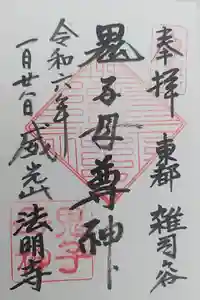 奉拝 東都 雑司ヶ谷
鬼子母尊神
令和六年
一月廿一日 威光山 法明寺
鬼子